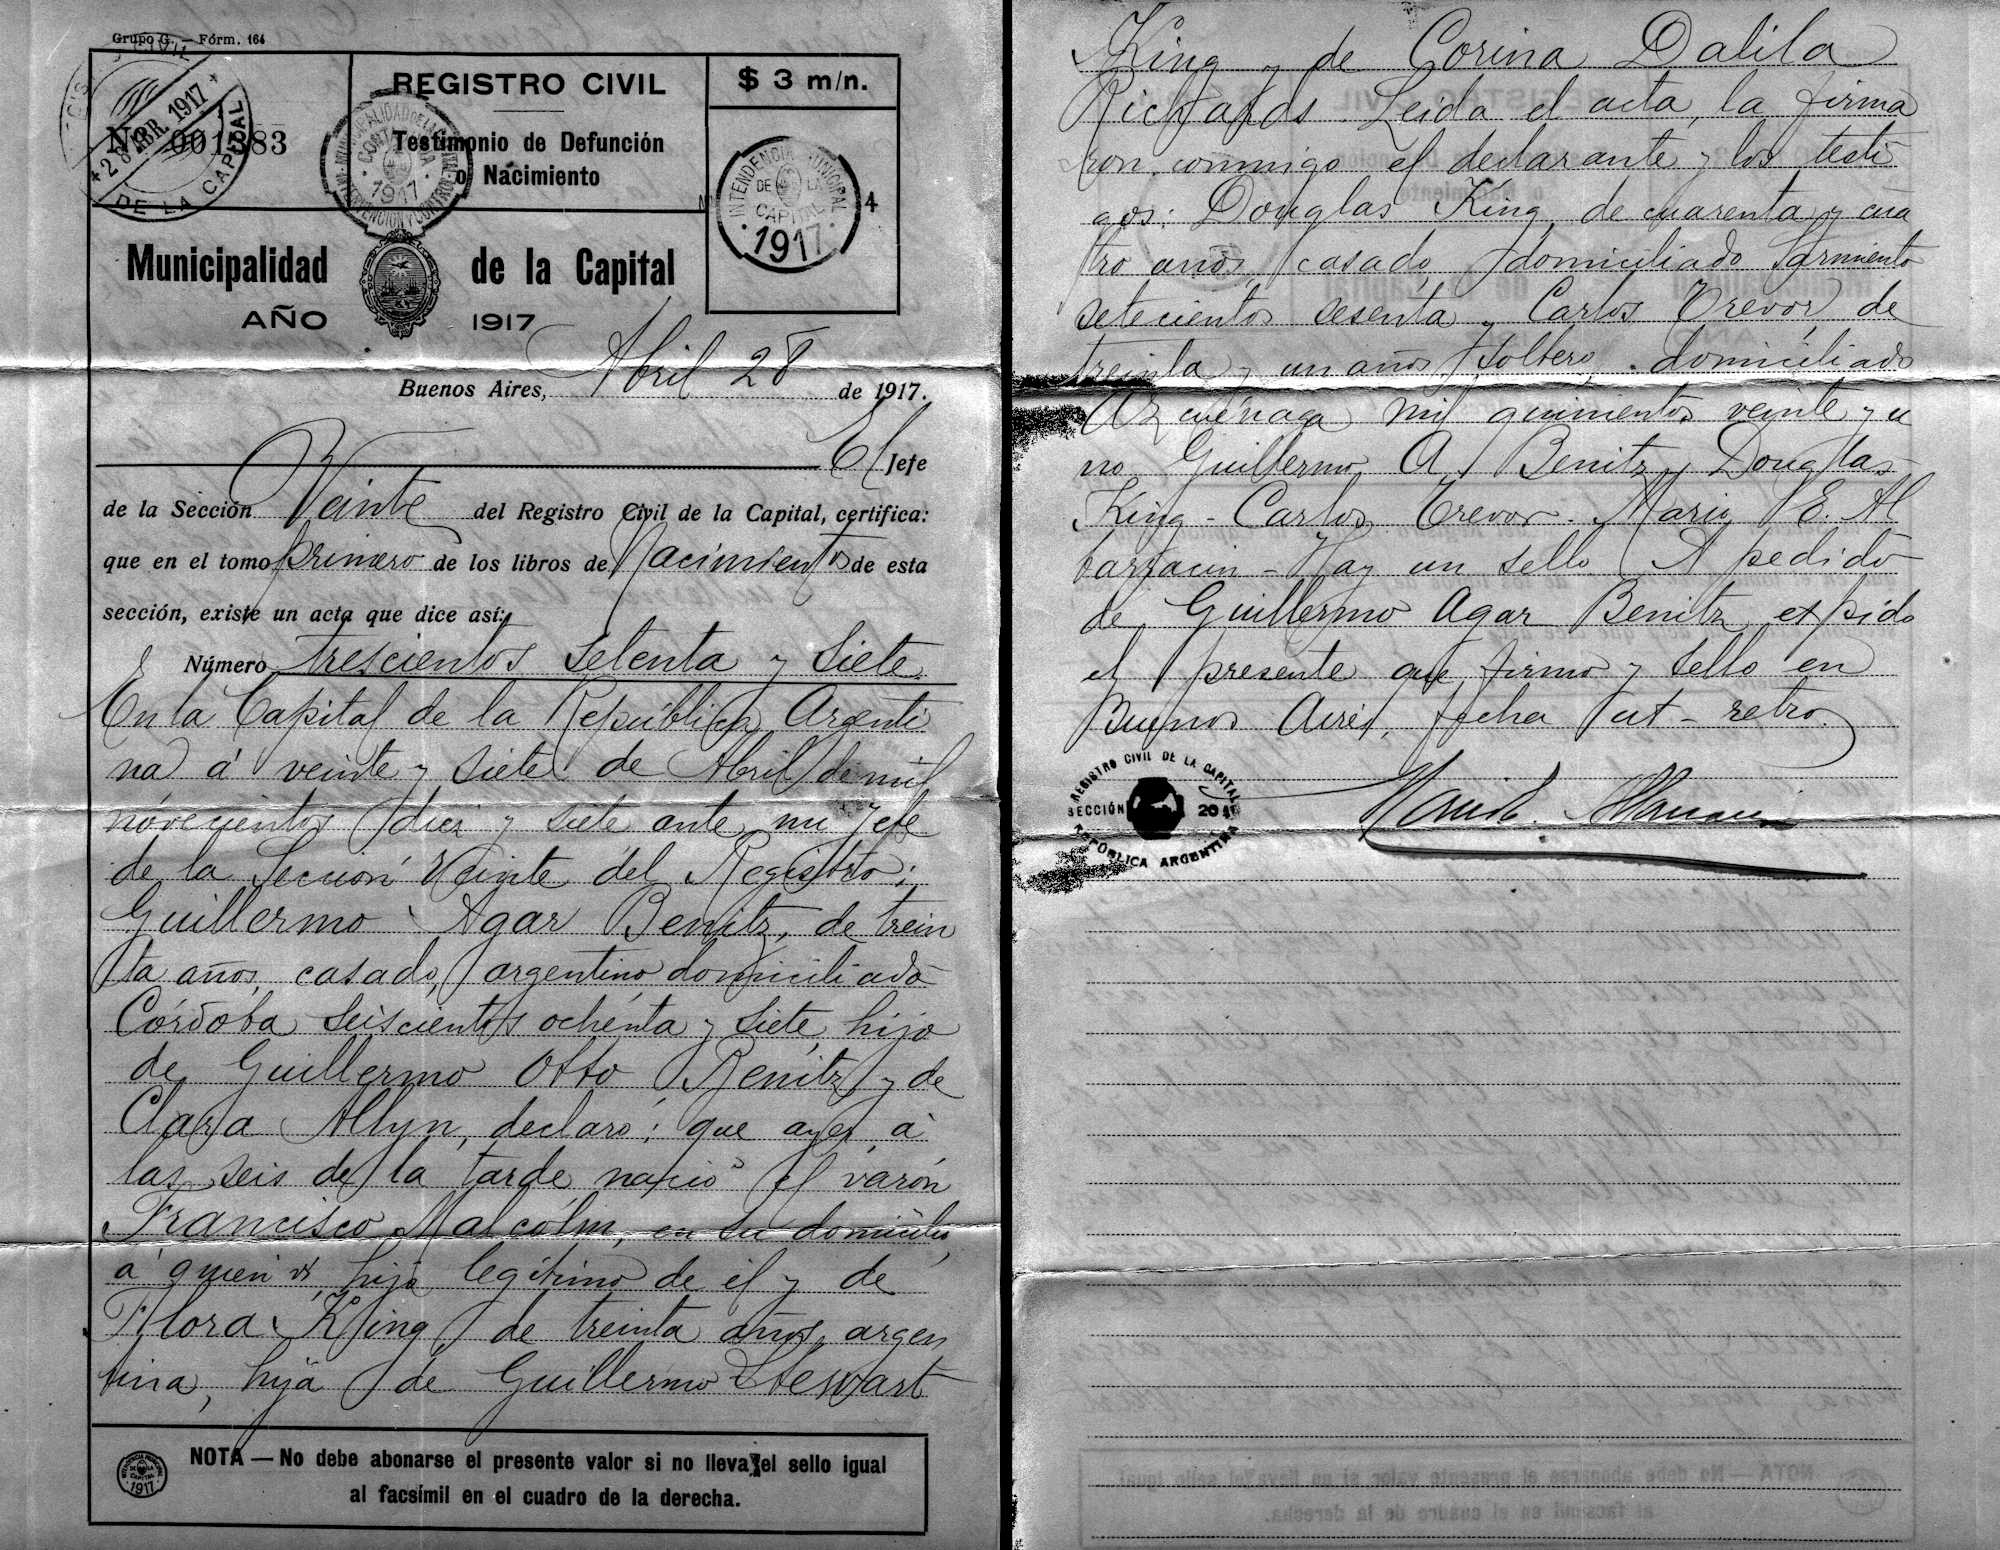 Grupo G. — Fórm. 164
REGISTRO CIVIL
Testimonio de Defunción
o Nacimiento
$ 3 m/n.
Nº 001383
28 ABR. 1917
DE LA CAPITAL
MUNICIPALIDAD DE LA CAPITAL
CONTADURIA
1917
INTERVENCION Y CONTROL
INTENDENCIA MUNICIPAL
DE LA
CAPITAL
1917
4
Municipalidad de la Capital
AÑO 1917
Buenos Aires, Abril 28 de 1917.
El Jefe
de la Sección Veinte del Registro Civil de la Capital, certifica:
que en el tomo primero de los libros de Nacimientos de esta
sección, existe un acta que dice así:
Número trescientos setenta y siete
En la Capital de la República Argenti
na á veinte y siete de Abril de mil
novecientos diez y siete ante mi Jefe
de la Sección Veinte del Registro;
Guillermo Agar Benitz, de trein
ta años, casado, argentino domiciliado
Córdoba seiscientos ochenta y siete, hijo
de Guillermo Otto Benitz y de
Clara Allyn, declaró: que ayer á
las seis de la tarde nació el varón
Francisco Malcolm, en su domicilio,
á quien vi, hijo legítimo de él y de
Flora King, de treinta años, argen
tina, hija de Guillermo Stewart
NOTA — No debe abonarse el presente valor si no lleva el sello igual
al facsímil en el cuadro de la derecha.
INTENDENCIA MUNICIPAL
DE LA
CAPITAL
1917
King y de Corina Dalila
Richards. Leida el acta, la firma
ron conmigo el declarante y los testi
gos: Douglas King, de cuarenta y cua
tro años, casado, domiciliado Sarmiento
setecientos sesenta y Carlos Trevor, de
treinta y un años, soltero, domiciliado
Azcuénaga mil quinientos veinte y u
no. Guillermo A. Benitz, Douglas
King - Carlos Trevor. Mario E. Al
barracin - Hay un sello. A pedido
de Guillermo Agar Benitz, expido
el presente que firmo y sello en
Buenos Aires, fecha ut-retro.
REGISTRO CIVIL DE LA CAPITAL
SECCIÓN 20
REPÚBLICA ARGENTINA